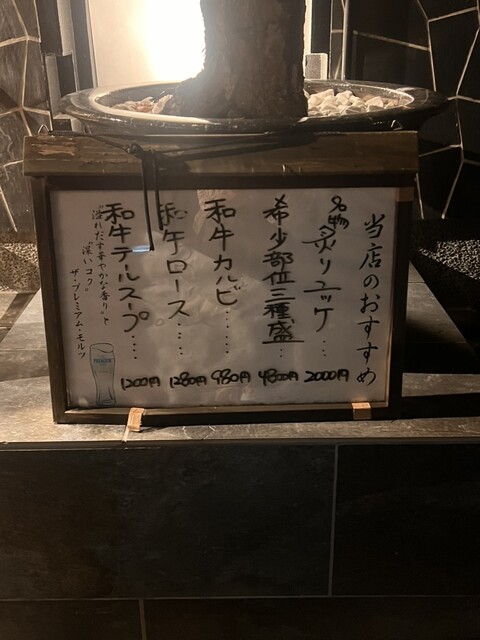 当店のおすすめ
名物 炙りユッケ… 2000円
希少部位三種盛… 4800円
和牛カルビ…… 980円
和牛ロース…… 1280円
和牛テールスープ…… 1200円
"溢れだす華やかな香り"と
"深いコク"
ザ・プレミアム・モルツ